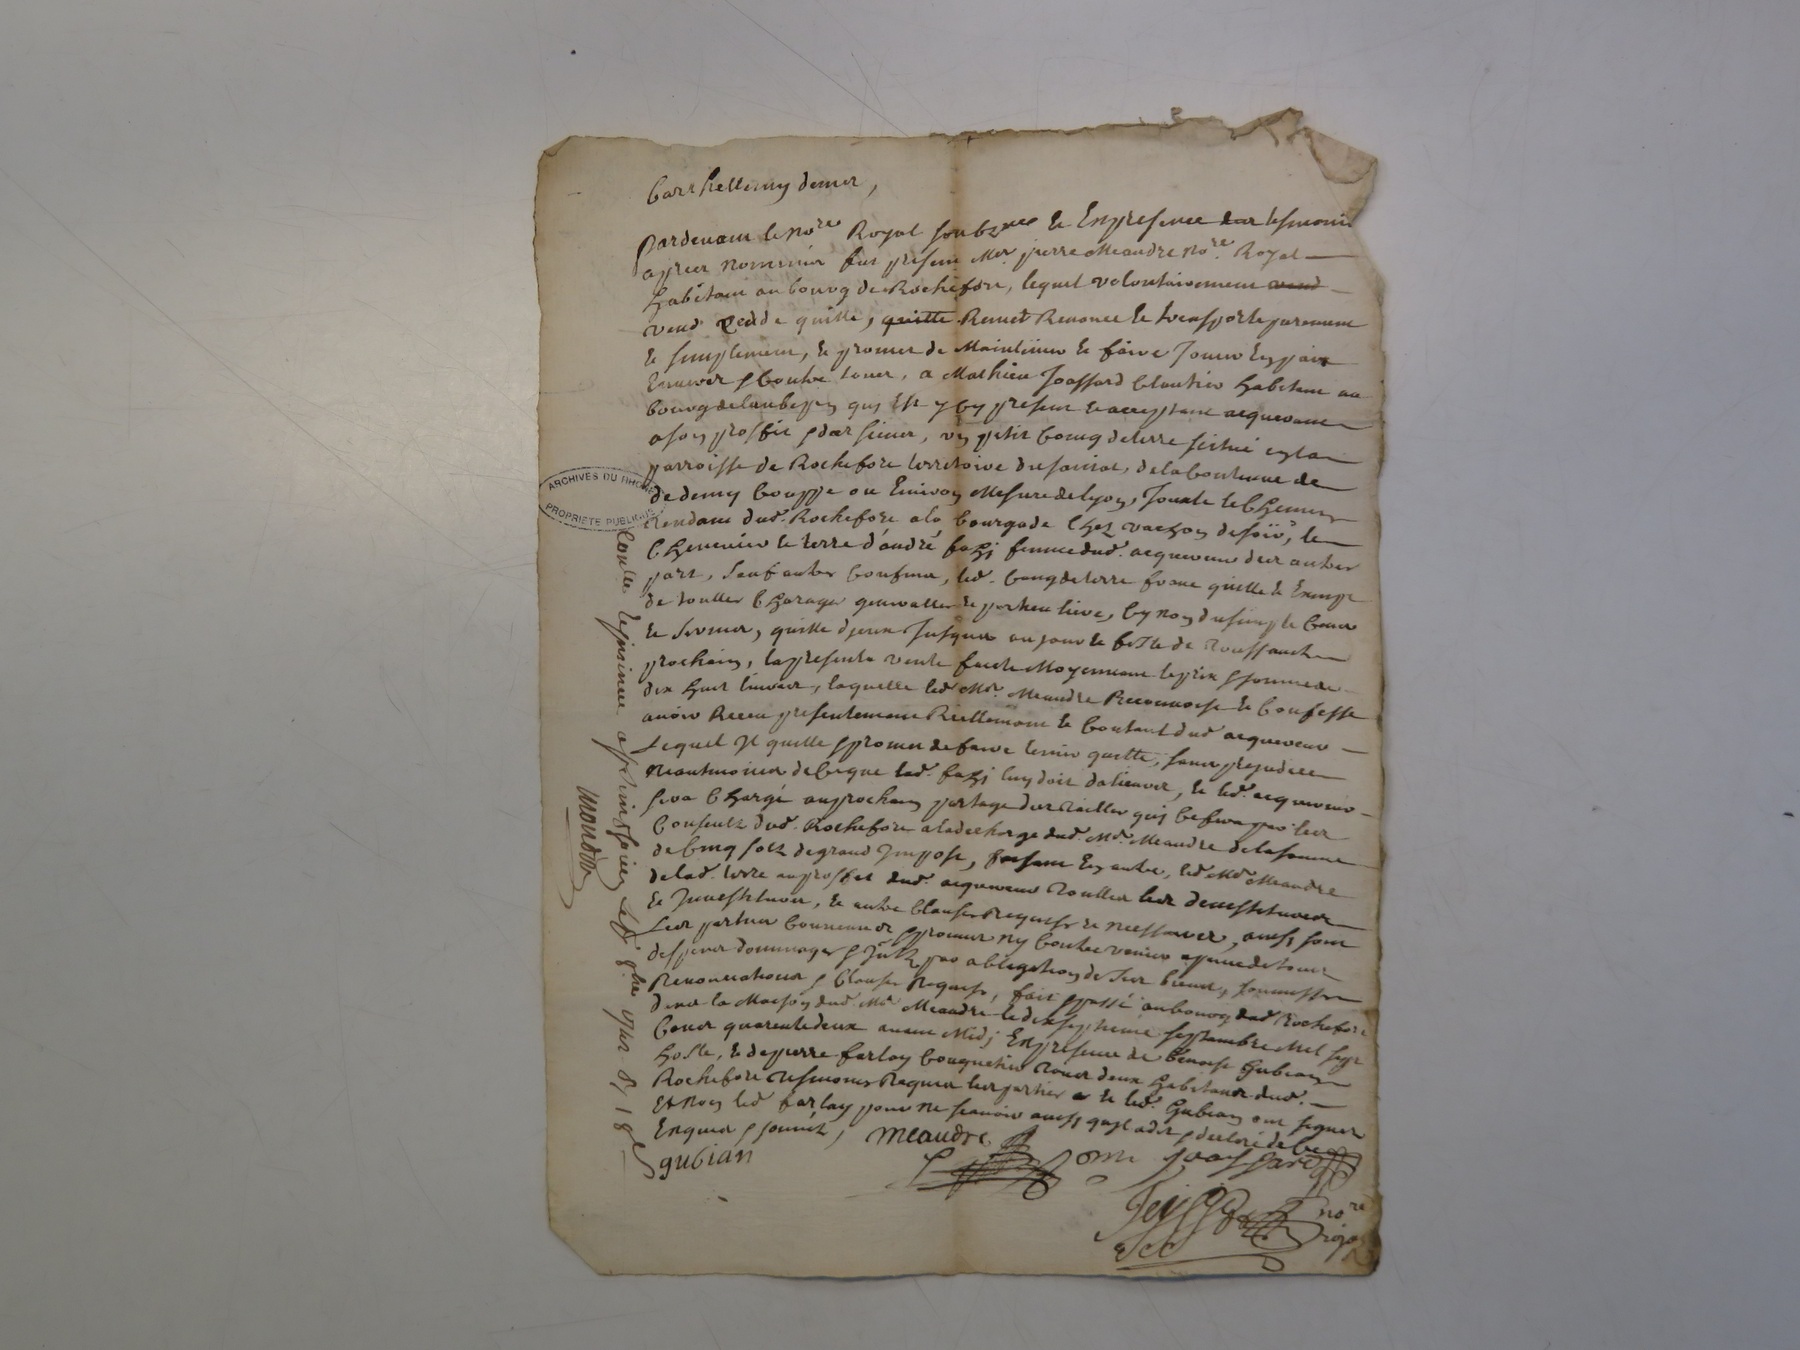 barthellemy demer,
Pardevant le no.re Royal soubz.né et En presence des tesmoins
apres nommés fut present M.e pierre Meandre no.re Royal
habitant au bourg de Rochefort, lequel volontairement vend
vend cedde quitte, quitte Remet Renonce et transporte purement
et simplement, et promet de Maintenir et faire Jouir En paix
Envers et Contre tous, a Mathieu Joassard Cloutier habitant au
bourg de laubepin qui Est ycy present et acceptant acquereur
a son proffit et des siens, un petit coing de terre scitué en la
parroisse de Rochefort territoire du , de la contenue de
de demy Couppe ou Environ Mesure de lyon, Jouxte le Chemin
tendant dud. Rochefort a la bourgade Chez vachon de soir, le
Chenevier et terre d'andré fahj femme dud. acquereur des autres
part, sauf autres Confins, led. coing de terre franc quitte et Exempt
de touttes Charages et , Cy non du simple Cens
et servis, quitte d'jceux Jusques au jour et feste de toussaintz
prochain, la presente vente faitte Moyennant le prix et somme de
dix huit livres, laquelle led. M.e Meandre Reconnoist et Confesse
avoir Receu presentement Reellement et Contant dud. acquereur
Lequel Jl quitte et promet de faire tenir quitte, sans prejudice
Neantmoins de ce que led. fahj luy doit dailleurs, et led. acquereur
sera Chargé au prochain partage des tailles qui se fera par les
Consulz dud. Rochefort a la decharge dud. M.e Meandre de la somme
de Cinq solz de grand Jmpost, faisant En outre, led. M.e Meandre
de lad. terre au proffit dud. acquereur touttes les devestitures
et Jnvestitures, et autres Clauses Requises et necessaires, ainsy sont
Les parties Convenues et promis ny Contre venir a peine de tous
despens dommages et Jntz par obligation de leurs biens, soumissions
Renonciations et Clauses Requises, fait et passé au bourg dud. Rochefort
dans la Maison dud. M.e Meandre le dix septieme septembre Mil sept
Cent quarente deux avant Midj En presence de benoist Gubian
hoste, et de pierre farlay tous deux habitans dud.
Rochefort tesmoins Requis les parties et led. Gubian ont signés
Et Non led. farlay pour ne sçavoir ainsy qu'jl a dit et declaré de ce
Enquis et sommés,
meandre
gubian
Joassard
no.re
royal
Conlle le jnsinué a st simphorien le 1742
moudon
ARCHIVES DU RHONE
PROPRIETE PUBLIQUE